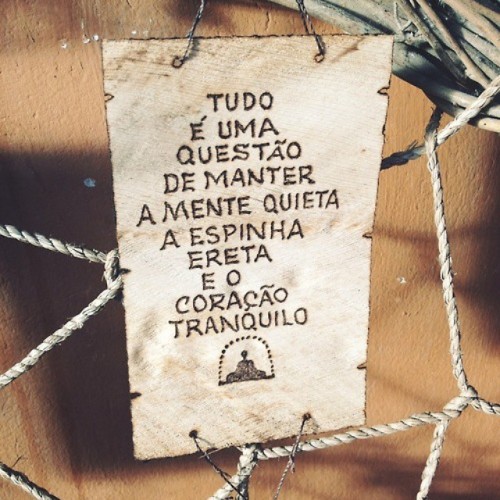 TUDO
É UMA
QUESTÃO
DE MANTER
A MENTE QUIETA
A ESPINHA
ERETA
E O
CORAÇÃO
TRANQUILO